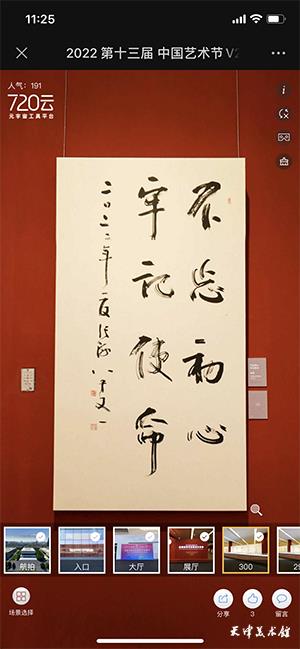 11:25
2022 第十三届 中国艺术节 V2
人气：191
720云
元宇宙工具平台
不忘初心
牢记使命
二〇二二年 八十又一
航拍
入口
大厅
展厅
300
场景选择
分享
3
留言
天津美术馆